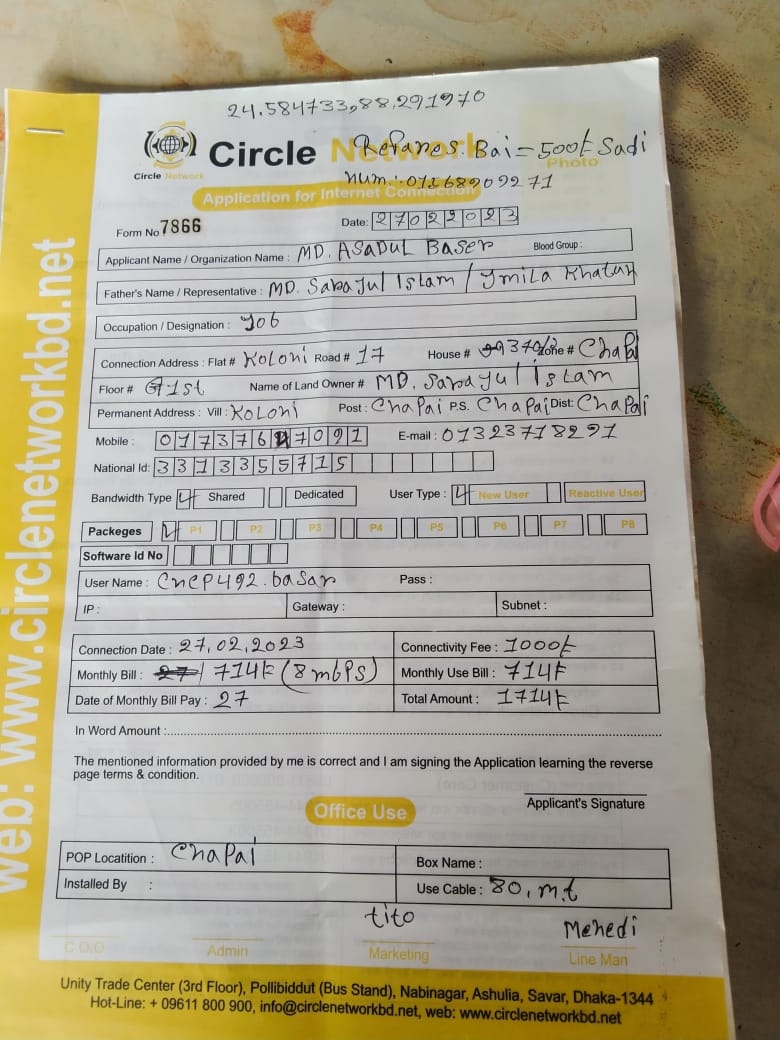 24.584733,88.291970
Circle Network
Refanes. Bai = 500৳ Sadi
Photo
Circle Network
num: 01768909271
Application for Internet Connection
Form No 7866
Date: 27022023
Applicant Name / Organization Name : MD. ASADUL Baser
Blood Group :
Father's Name / Representative : MD. Sabajul Islam / Jmila Khatun
Occupation / Designation : Job
Connection Address : Flat # Koloni Road # 17 House # Zone # Chapai
Floor # 1st Name of Land Owner # MD. Sabajul Islam
Permanent Address : Vill : Koloni Post : Chapai P.S. Chapai Dist: Chapai
Mobile : E-mail : 01323718291
National Id: 3313355715
Bandwidth Type Shared Dedicated User Type : New User Reactive User
Packeges P1 P2 P3 P4 P5 P6 P7 P8
Software Id No
User Name : Cncp492.basar Pass :
IP : Gateway : Subnet :
Connection Date : 27,02,2023 Connectivity Fee : 1000৳
Monthly Bill : 714৳ (8 mbPS) Monthly Use Bill : 714৳
Date of Monthly Bill Pay : 27 Total Amount : 1714৳
In Word Amount :
The mentioned information provided by me is correct and I am signing the Application learning the reverse
page terms & condition.
Applicant's Signature
Office Use
POP Locatition : Chapai Box Name :
Installed By : Use Cable : 80, m.t
tito Mehedi
C.O.O Admin Marketing Line Man
Unity Trade Center (3rd Floor), Pollibiddut (Bus Stand), Nabinagar, Ashulia, Savar, Dhaka-1344
Hot-Line: + 09611 800 900, info@circlenetworkbd.net, web: www.circlenetworkbd.net
web: www.circlenetworkbd.net